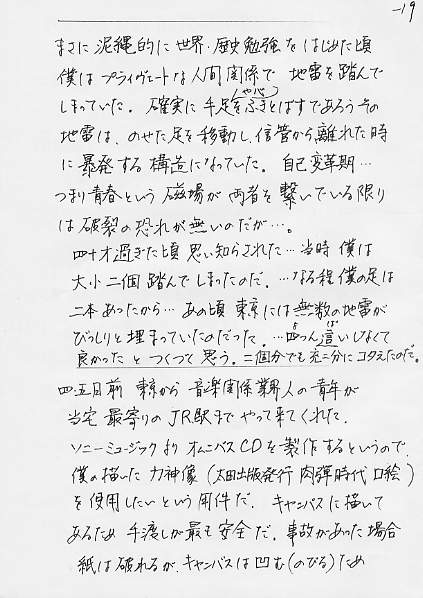 -19
まさに泥縄的に世界・歴史勉強をはじめた頃
僕はプライヴェートな人間関係で 地雷を踏んで
しまっていた。確実に手足や心をふきとばすであろうその
地雷は、のせた足を移動し、信管から離れた時
に暴発する構造になっていた。自己変革期…
つまり青春という磁場が両者を繋いでいる限り
は破裂の恐れが無いのだが…。
四十才過ぎた頃 思い知らされた…当時 僕は
大小二個踏んでしまったのだ。…なる程僕の足は
二本あったから…あの頃 東京には無数の地雷が
びっしりと埋まっていたのだった。…四つん這いしなくて
良かったと つくづく思う。二個分でも充二分にコタえたのだ。
四・五日前 東京から音楽関係業界人の青年が
当宅最寄りのJR駅までやって来てくれた。
ソニーミュージックよりオムニバスCDを製作するというので、
僕の描いた力神像(太田出版発行 肉弾時代口絵)
を使用したいという用件だ。キャンバスに描いて
あるため手渡しが最も安全だ。事故があった場合
紙は破れるが、キャンバスは凹む(のびる)ため